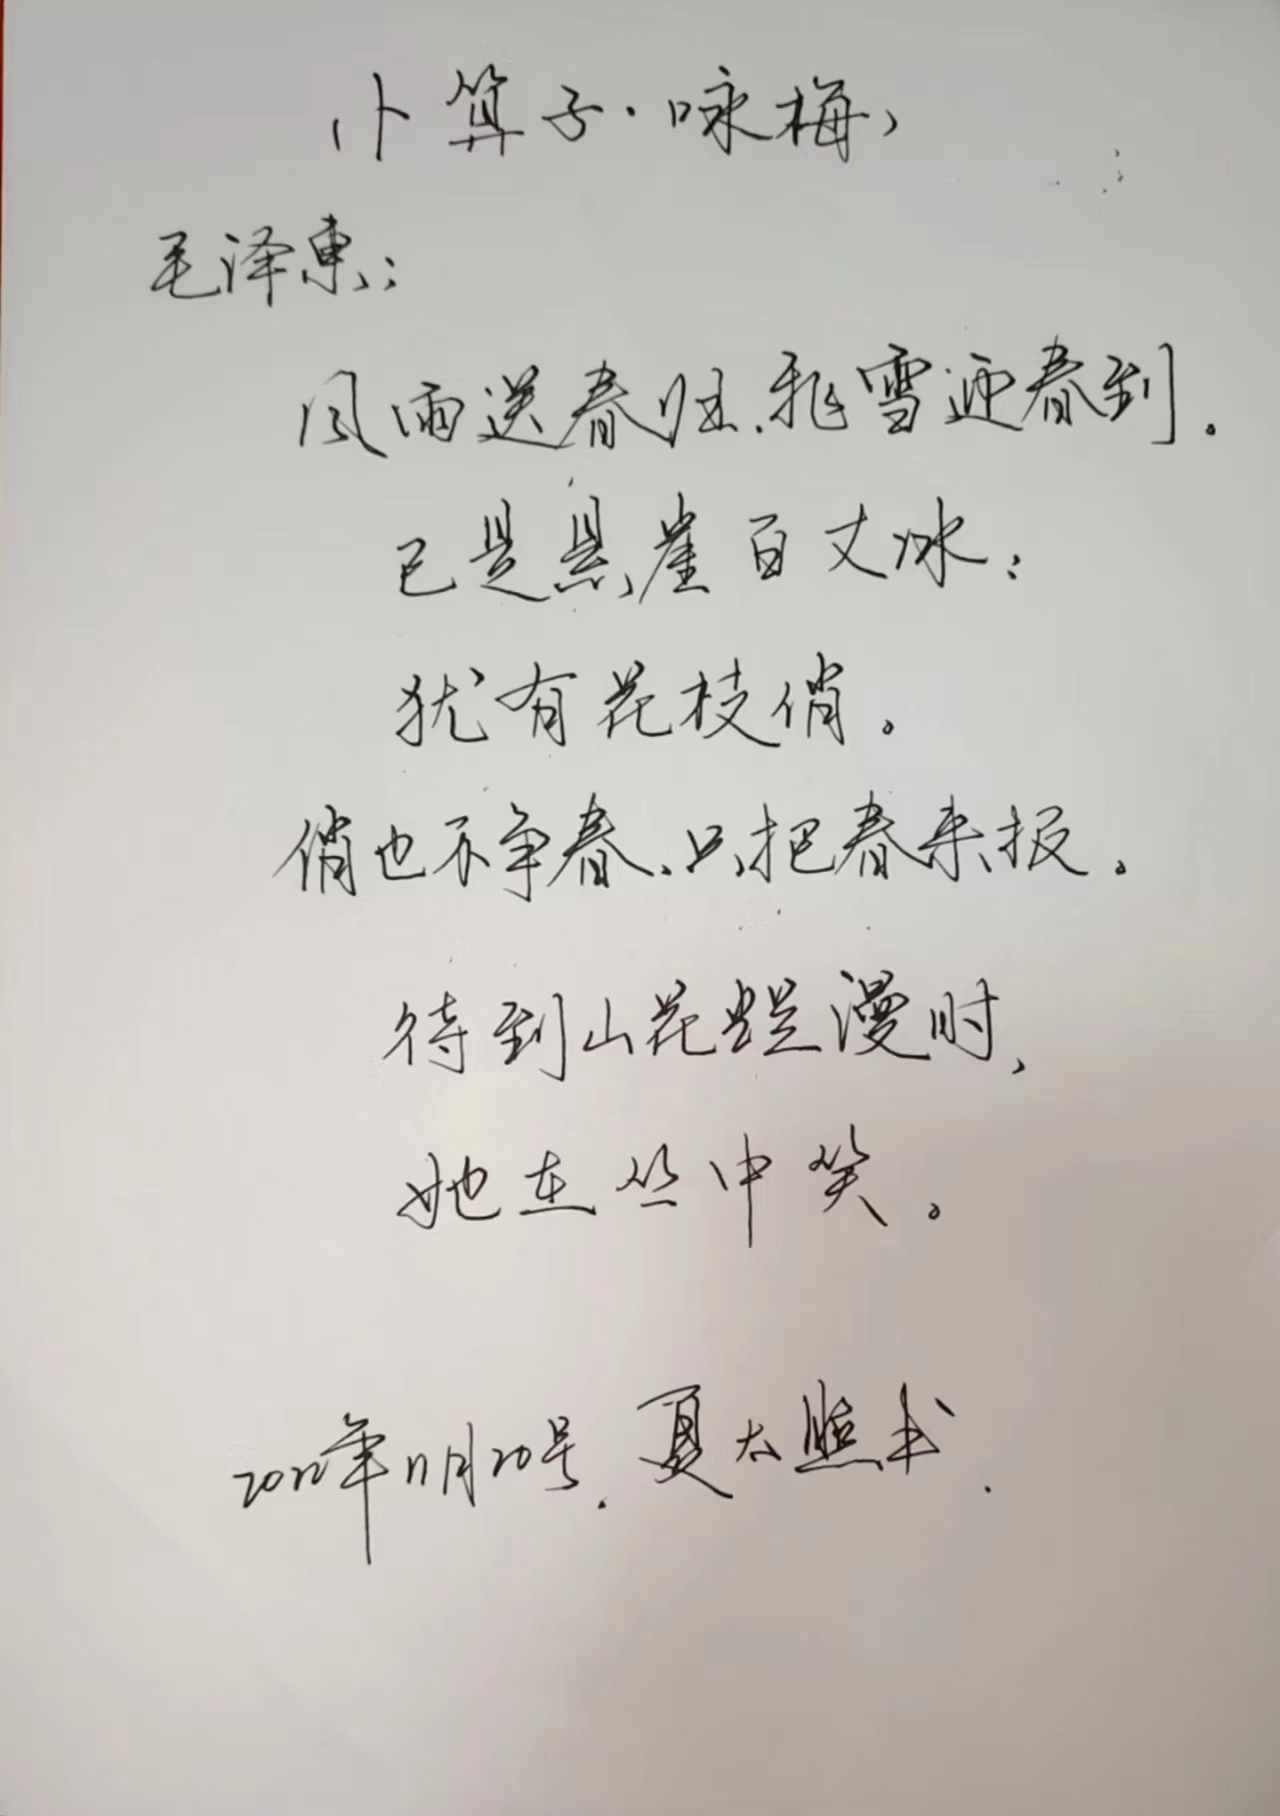 卜算子·咏梅
毛泽東:
风雨送春归.飛雪迎春到。
已是悬崖百丈冰:
犹有花枝俏。
俏也不争春、只把春来报。
待到山花烂漫时,
她在丛中笑。
2022年11月20号.夏太照书.